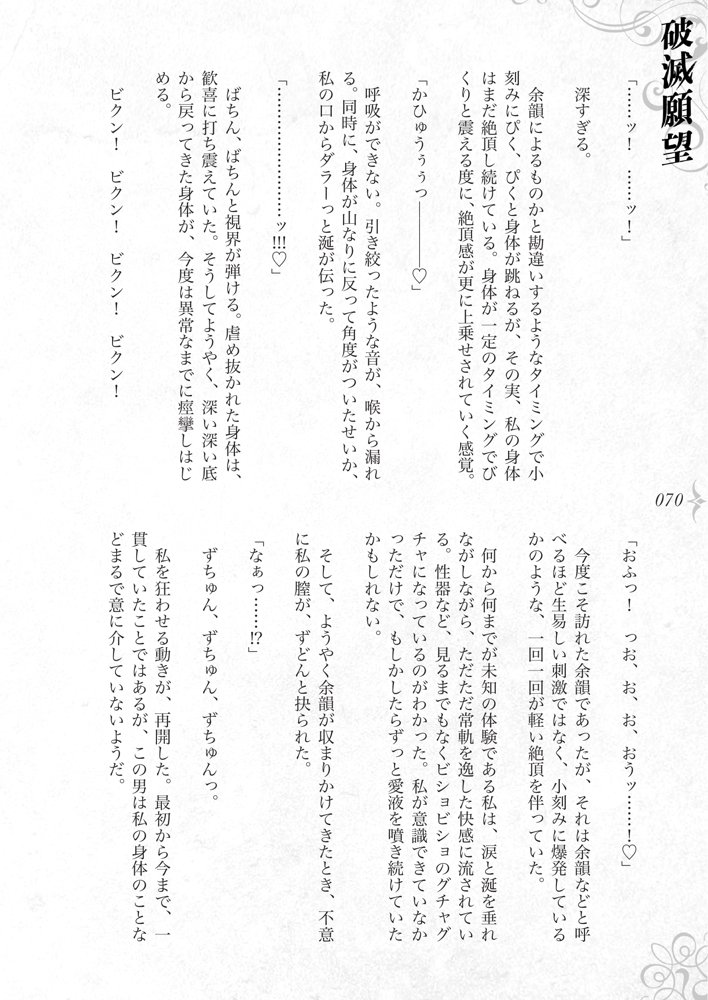 破滅願望
「……ッ！　……ッ！」
深すぎる。
余韻によるものかと勘違いするようなタイミングで小
刻みにぴく、ぴくと身体が跳ねるが、その実、私の身体
はまだ絶頂し続けている。身体が一定のタイミングでび
くりと震える度に、絶頂感が更に上乗せされていく感覚。
「かひゅうぅぅっ――――♡」
呼吸ができない。引き絞ったような音が、喉から漏れ
る。同時に、身体が山なりに反って角度がついたせいか、
私の口からダラーっと涎が伝った。
「……………………ッ!!!♡」
ばちん、ばちんと視界が弾ける。虐め抜かれた身体は、
歓喜に打ち震えていた。そうしてようやく、深い深い底
から戻ってきた身体が、今度は異常なまでに痙攣しはじ
める。
ビクン！　ビクン！　ビクン！　ビクン！
070
「おふっ！　っお、お、お、おうッ……！♡」
今度こそ訪れた余韻であったが、それは余韻などと呼
べるほど生易しい刺激ではなく、小刻みに爆発している
かのような、一回一回が軽い絶頂を伴っていた。
何から何までが未知の体験である私は、涙と涎を垂れ
ながしながら、ただただ常軌を逸した快感に流されてい
る。性器など、見るまでもなくビショビショのグチャグ
チャになっているのがわかった。私が意識できていなか
っただけで、もしかしたらずっと愛液を噴き続けていた
かもしれない。
そして、ようやく余韻が収まりかけてきたとき、不意
に私の膣が、ずどんと抉られた。
「なぁっ……!?」
ずちゅん、ずちゅん、ずちゅんっ。
私を狂わせる動きが、再開した。最初から今まで、一
貫していたことではあるが、この男は私の身体のことな
どまるで意に介していないようだ。